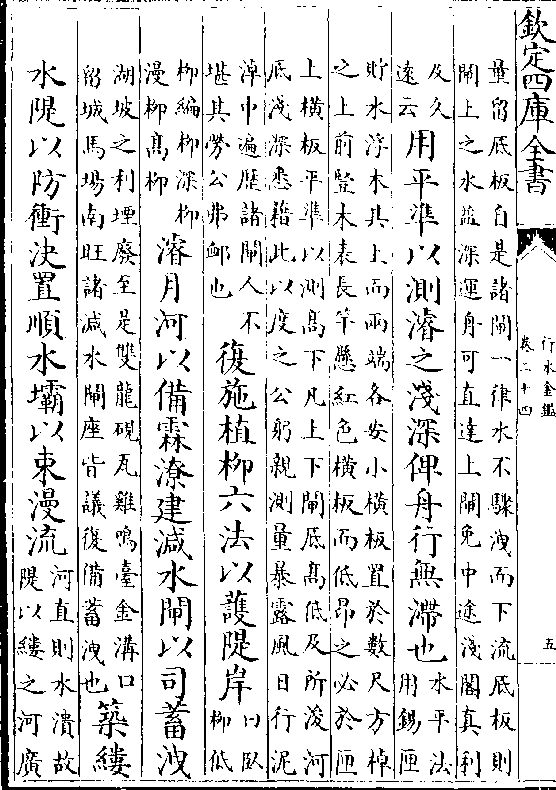 欽定四庫全書
行水金鑑
卷二十四
五
量留底板自是諸閘一律水不驟洩而下流底板則
閘上之水益深運舟可直達上閘免中途淺閣真利
及久
遠云
用平準以測濬之淺深俾舟行無滯也
水平法
用錫匣
貯水浮木其上而兩端各安小橫板置於數尺方棹
之上前豎木表長竿懸紅色橫板而低昂之必於匣
上橫板平準以測髙下凡上下閘底髙低及所浚河
底淺深悉藉此以度之公躬親測量暴露風日行泥
淖中遍歴諸閘人不
堪其勞公弗䘏也
復施植柳六法以護隄岸
曰臥
柳低
柳編柳深柳
漫柳髙柳
濬月河以備霖潦建減水閘以司蓄洩
湖坡之利堙廢至是雙龍硯瓦雞鳴臺金溝口
留城馬場南旺諸減水閘座皆議復備蓄洩也
築縷
水隄以防衝決置順水壩以束漫流
河直則水潰故
隄以縷之河廣